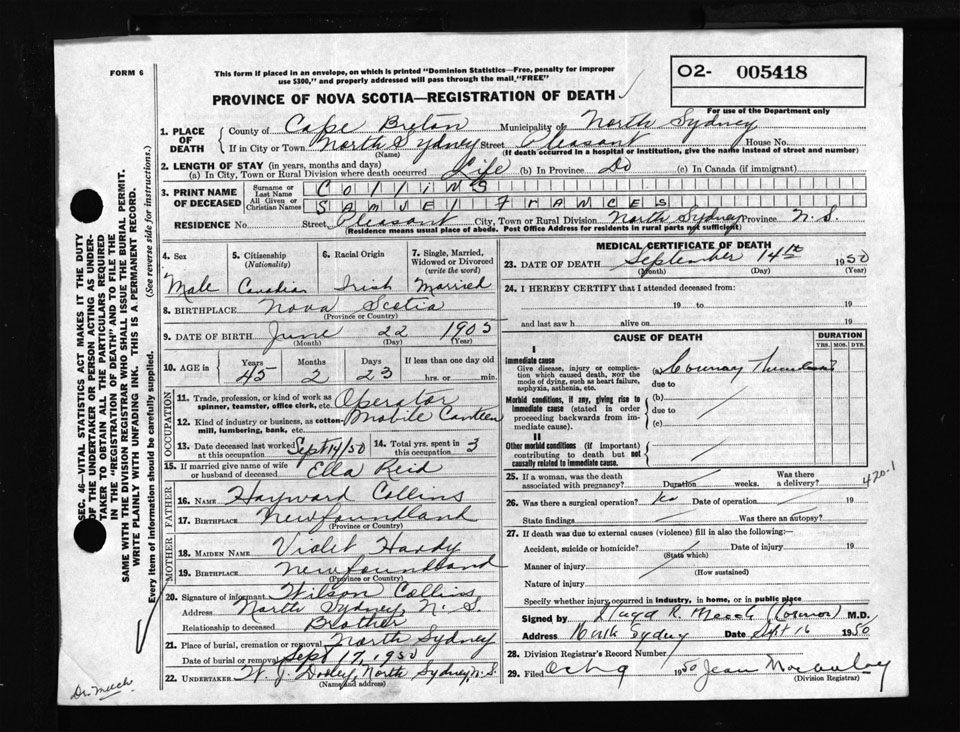 FORM 6
This form if placed in an envelope, on which is printed "Dominion Statistics—Free, penalty for improper
use $300," and properly addressed will pass through the mail "FREE"
O2- 005418
For use of the Department only
PROVINCE OF NOVA SCOTIA—REGISTRATION OF DEATH
1. PLACE OF DEATH
County of Cape Breton Municipality of North Sydney
If in City or Town North Sydney Street Pleasant House No.
(Name) (If death occurred in a hospital or institution, give the name instead of street and number)
2. LENGTH OF STAY (in years, months and days)
(a) In City, Town or Rural Division where death occurred Life (b) In Province Do (c) In Canada (if immigrant)
3. PRINT NAME OF DECEASED
Surname or Last Name Collins
All Given or Christian Names SAMUEL FRANCES
RESIDENCE No. Street Pleasant City, Town or Rural Division North Sydney Province N.S.
(Residence means usual place of abode. Post Office Address for residents in rural parts not sufficient)
4. Sex Male
5. Citizenship (Nationality) Canadian
6. Racial Origin Irish
7. Single, Married, Widowed or Divorced (write the word) Married
8. BIRTHPLACE Nova Scotia
(Province or Country)
9. DATE OF BIRTH June 22 1905
(Month) (Day) (Year)
10. AGE in Years 45 Months 2 Days 23 If less than one day old hrs. or min.
OCCUPATION
11. Trade, profession, or kind of work as spinner, teamster, office clerk, etc. Operator
12. Kind of industry or business, as cotton-mill, lumbering, bank, etc. Mobile Canteen
13. Date deceased last worked at this occupation Sept 14/50
14. Total yrs. spent in this occupation 3
15. If married give name of wife or husband of deceased Ella Reid
FATHER
16. NAME Hayward Collins
17. BIRTHPLACE Newfoundland
(Province or Country)
MOTHER
18. MAIDEN NAME Violet Hardy
19. BIRTHPLACE Newfoundland
(Province or Country)
20. Signature of informant Wilson Collins
Address North Sydney, N.S.
Relationship to deceased Brother
21. Place of burial, cremation or removal North Sydney
Date of burial or removal Sept 17, 1950
22. UNDERTAKER W. J. Dooley, North Sydney, N.S.
(Name and address)
MEDICAL CERTIFICATE OF DEATH
23. DATE OF DEATH September 14th 1950
(Month) (Day) (Year)
24. I HEREBY CERTIFY that I attended deceased from:
19 to 19
and last saw h alive on 19
CAUSE OF DEATH
DURATION
YRS. MOS. DYS.
I
Immediate cause
Give disease, injury or complication which caused death, not the mode of dying, such as heart failure, asphyxia, asthenia, etc.
(a)
due to
Morbid conditions, if any, giving rise to immediate cause (stated in order proceeding backwards from immediate cause).
(b)
due to
(c)
II
Other morbid conditions (if important) contributing to death but not causally related to immediate cause.
25. If a woman, was the death associated with pregnancy? Duration weeks. Was there a delivery?
420-1
26. Was there a surgical operation? No Date of operation 19
State findings Was there an autopsy?
27. If death was due to external causes (violence) fill in also the following:
Accident, suicide or homicide? Date of injury 19
(State which)
Manner of injury
(How sustained)
Nature of injury
Specify whether injury occurred in industry, in home, or in public place
Signed by R. Meech (Coroner) M.D.
Address North Sydney Date Sept 16 1950
28. Division Registrar's Record Number
29. Filed Oct 9 1950 Jean Macaulay
(Division Registrar)
SEC. 46—VITAL STATISTICS ACT MAKES IT THE DUTY
OF THE UNDERTAKER OR PERSON ACTING AS UNDER-
TAKER TO OBTAIN ALL THE PARTICULARS REQUIRED
IN THE "REGISTRATION OF DEATH" AND TO FILE THE
SAME WITH THE DIVISION REGISTRAR WHO SHALL ISSUE THE BURIAL PERMIT.
WRITE PLAINLY WITH UNFADING INK. THIS IS A PERMANENT RECORD.
Every item of information should be carefully supplied. (See reverse side for instructions.)
Dr. Meech